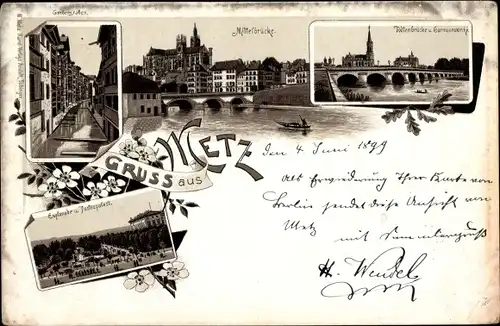 Gerbergraben.
Mittelbrücke.
Todtenbrücke u. Garnisonkirche.
GRUSS aus
METZ
Esplanade u. Justizpalast.
den 4 Juni 1899
Als Erwiederung Ihrer Karte von
Berlin sendet diese Ansicht von
Metz
mit
H. Wendel